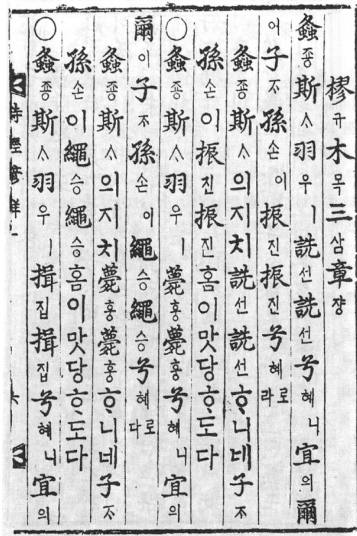 樛규木목三삼章쟝
螽종斯ᄉ羽우ㅣ詵선詵선兮혜니宜의爾
어子ᄌ孫손이振진振진兮혜로라
螽종斯ᄉ의지치詵선詵선ᄒᆞ니네子ᄌ
孫손이振진振진홈이맛당ᄒᆞ도다
○螽종斯ᄉ羽우ㅣ薨홍薨홍兮혜니宜의
爾이子ᄌ孫손이繩승繩승兮혜로다
螽종斯ᄉ의지치薨홍薨홍ᄒᆞ니네子ᄌ
孫손이繩승繩승홈이맛당ᄒᆞ도다
○螽종斯ᄉ羽우ㅣ揖집揖집兮혜니宜의